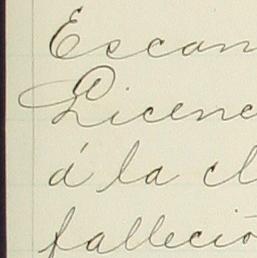 Escan
Licenc
á la cl
falleció